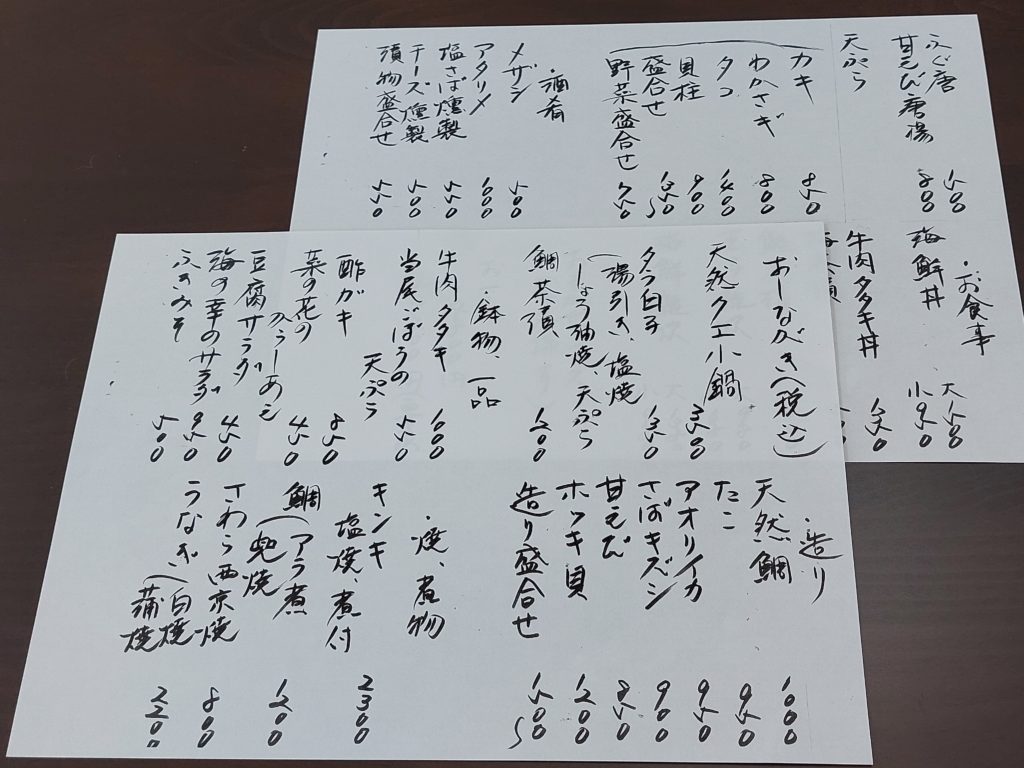 おしながき(税込)
天然クエ小鍋 3500
タラ白子 1350
(湯引き、塩焼
しょうゆ焼、天ぷら
鯛茶漬 1200
・鉢物、一品
牛肉タタキ 1000
当尾ごぼうの
天ぷら 550
酢ガキ 850
菜の花の
からしあえ 450
豆腐サラダ 450
海の幸のサラダ 950
ふきみそ 500
・造り
天然鯛 1000
たこ 950
アオリイカ 950
さばキズシ 900
甘えび 850
ホッキ貝 1200
造り盛合せ 1500〜
・焼、煮物
キンキ
塩焼、煮付 2300
鯛(アラ煮
兜焼 1200
さわら西京焼 800
うなぎ(白焼
蒲焼 2200
ふぐ唐 500
甘えび唐揚 800
天ぷら
カキ 850
わかさぎ 800
タコ
貝柱 900
盛合せ
野菜盛合せ 750
・酒肴
メザシ 500
アタリメ 1000
塩さば燻製 550
チーズ燻製 500
漬物盛合せ 550
・お食事
海鮮丼 大1500
小950
牛肉タタキ丼 1350